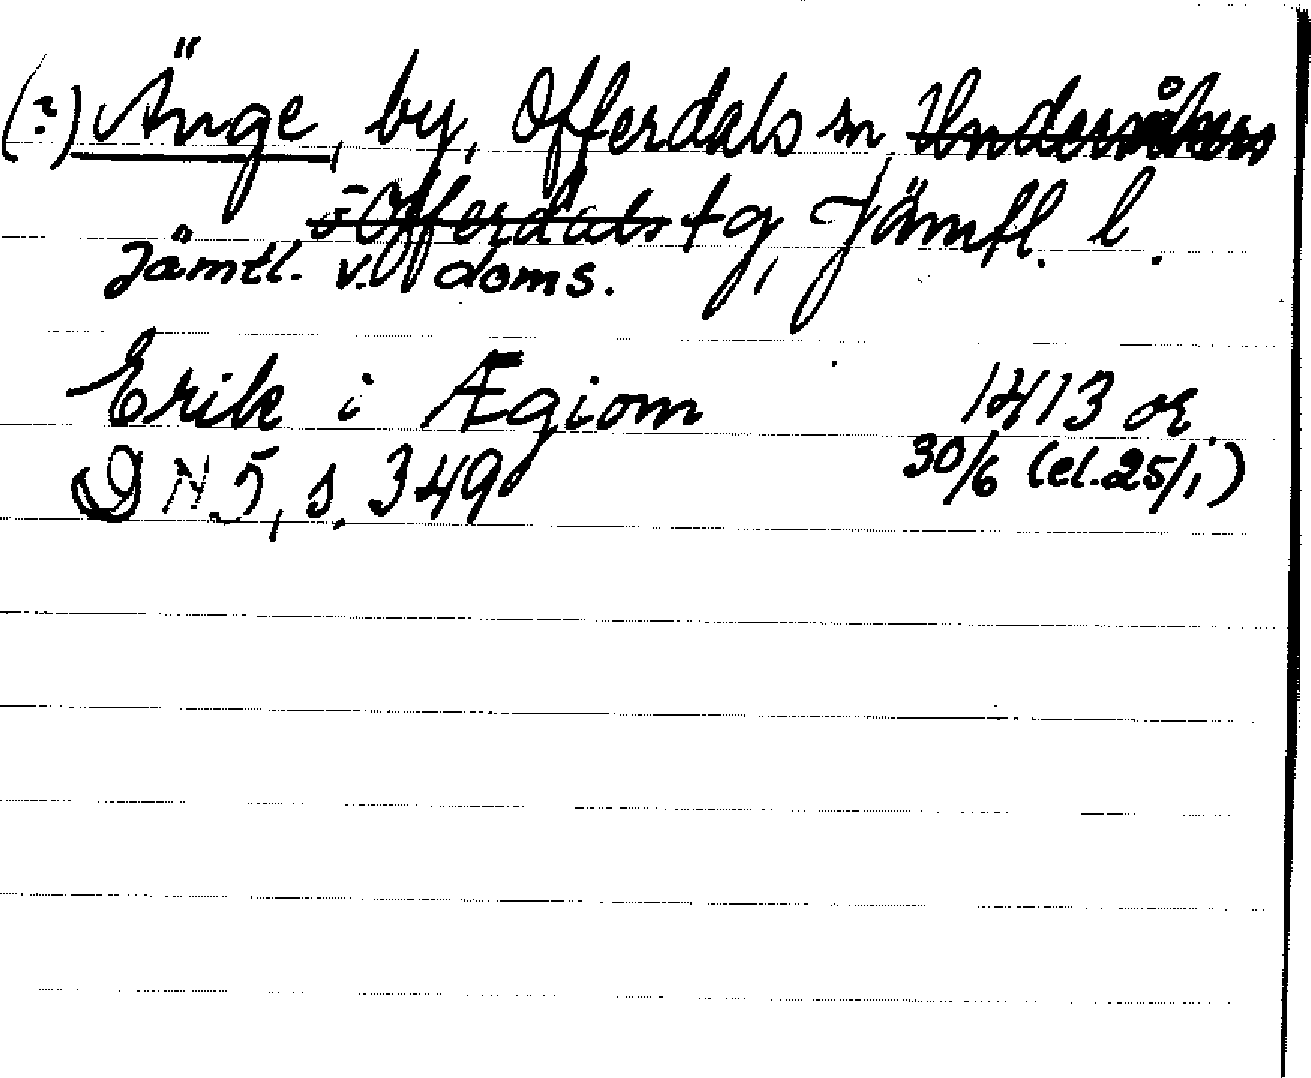 (?) Änge, by, Offerdals sn, Undersåkers
-Offerdals tg, Jämtl. l.
Jämtl. v. doms.
Erik i Ægiom 1413 or.
DN 5, s. 349 30/6 (el. 25/1)